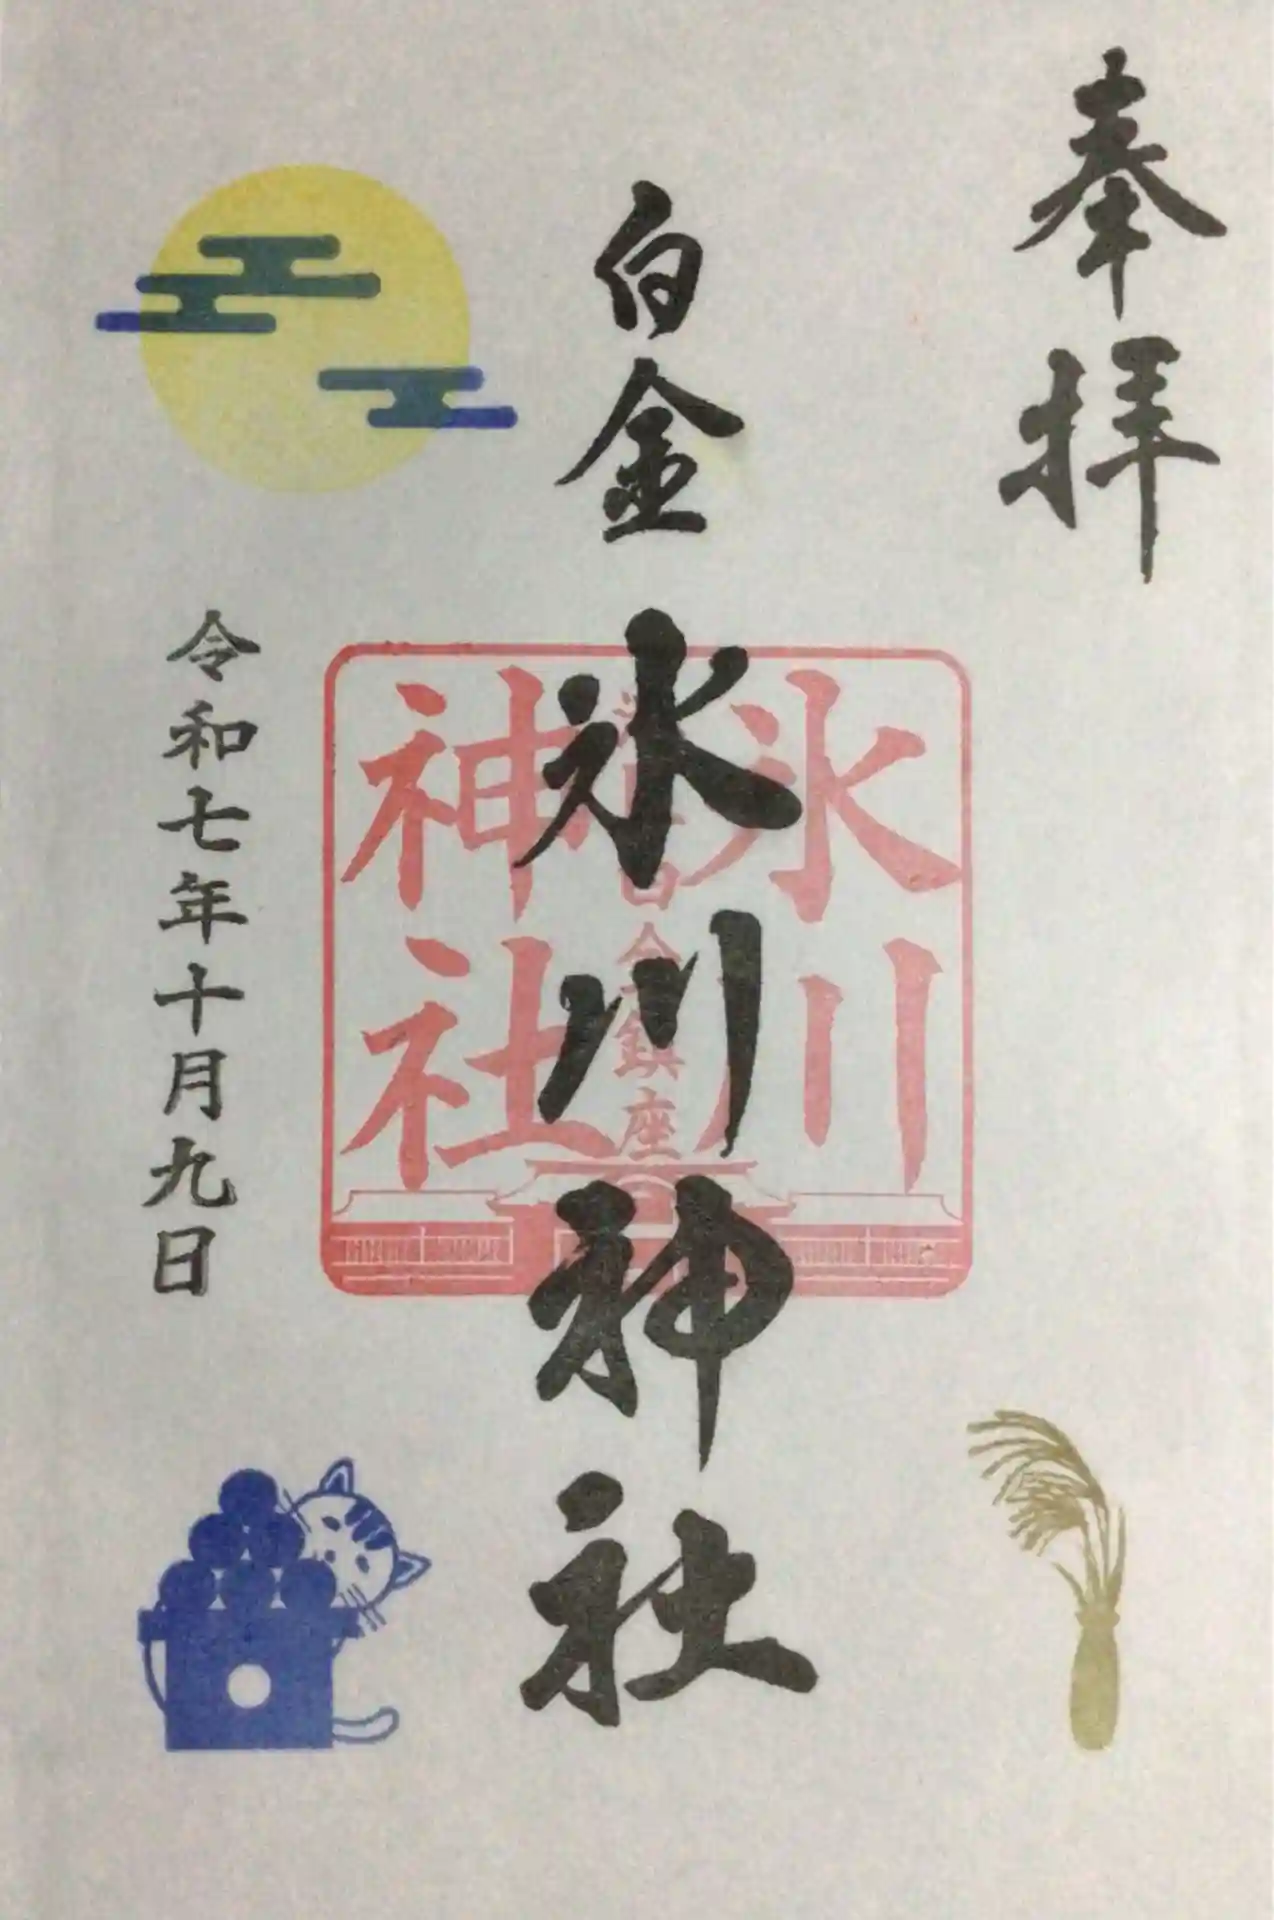 奉拝
白金 氷川神社
氷川
白金鎮座
神社
令和七年十月九日